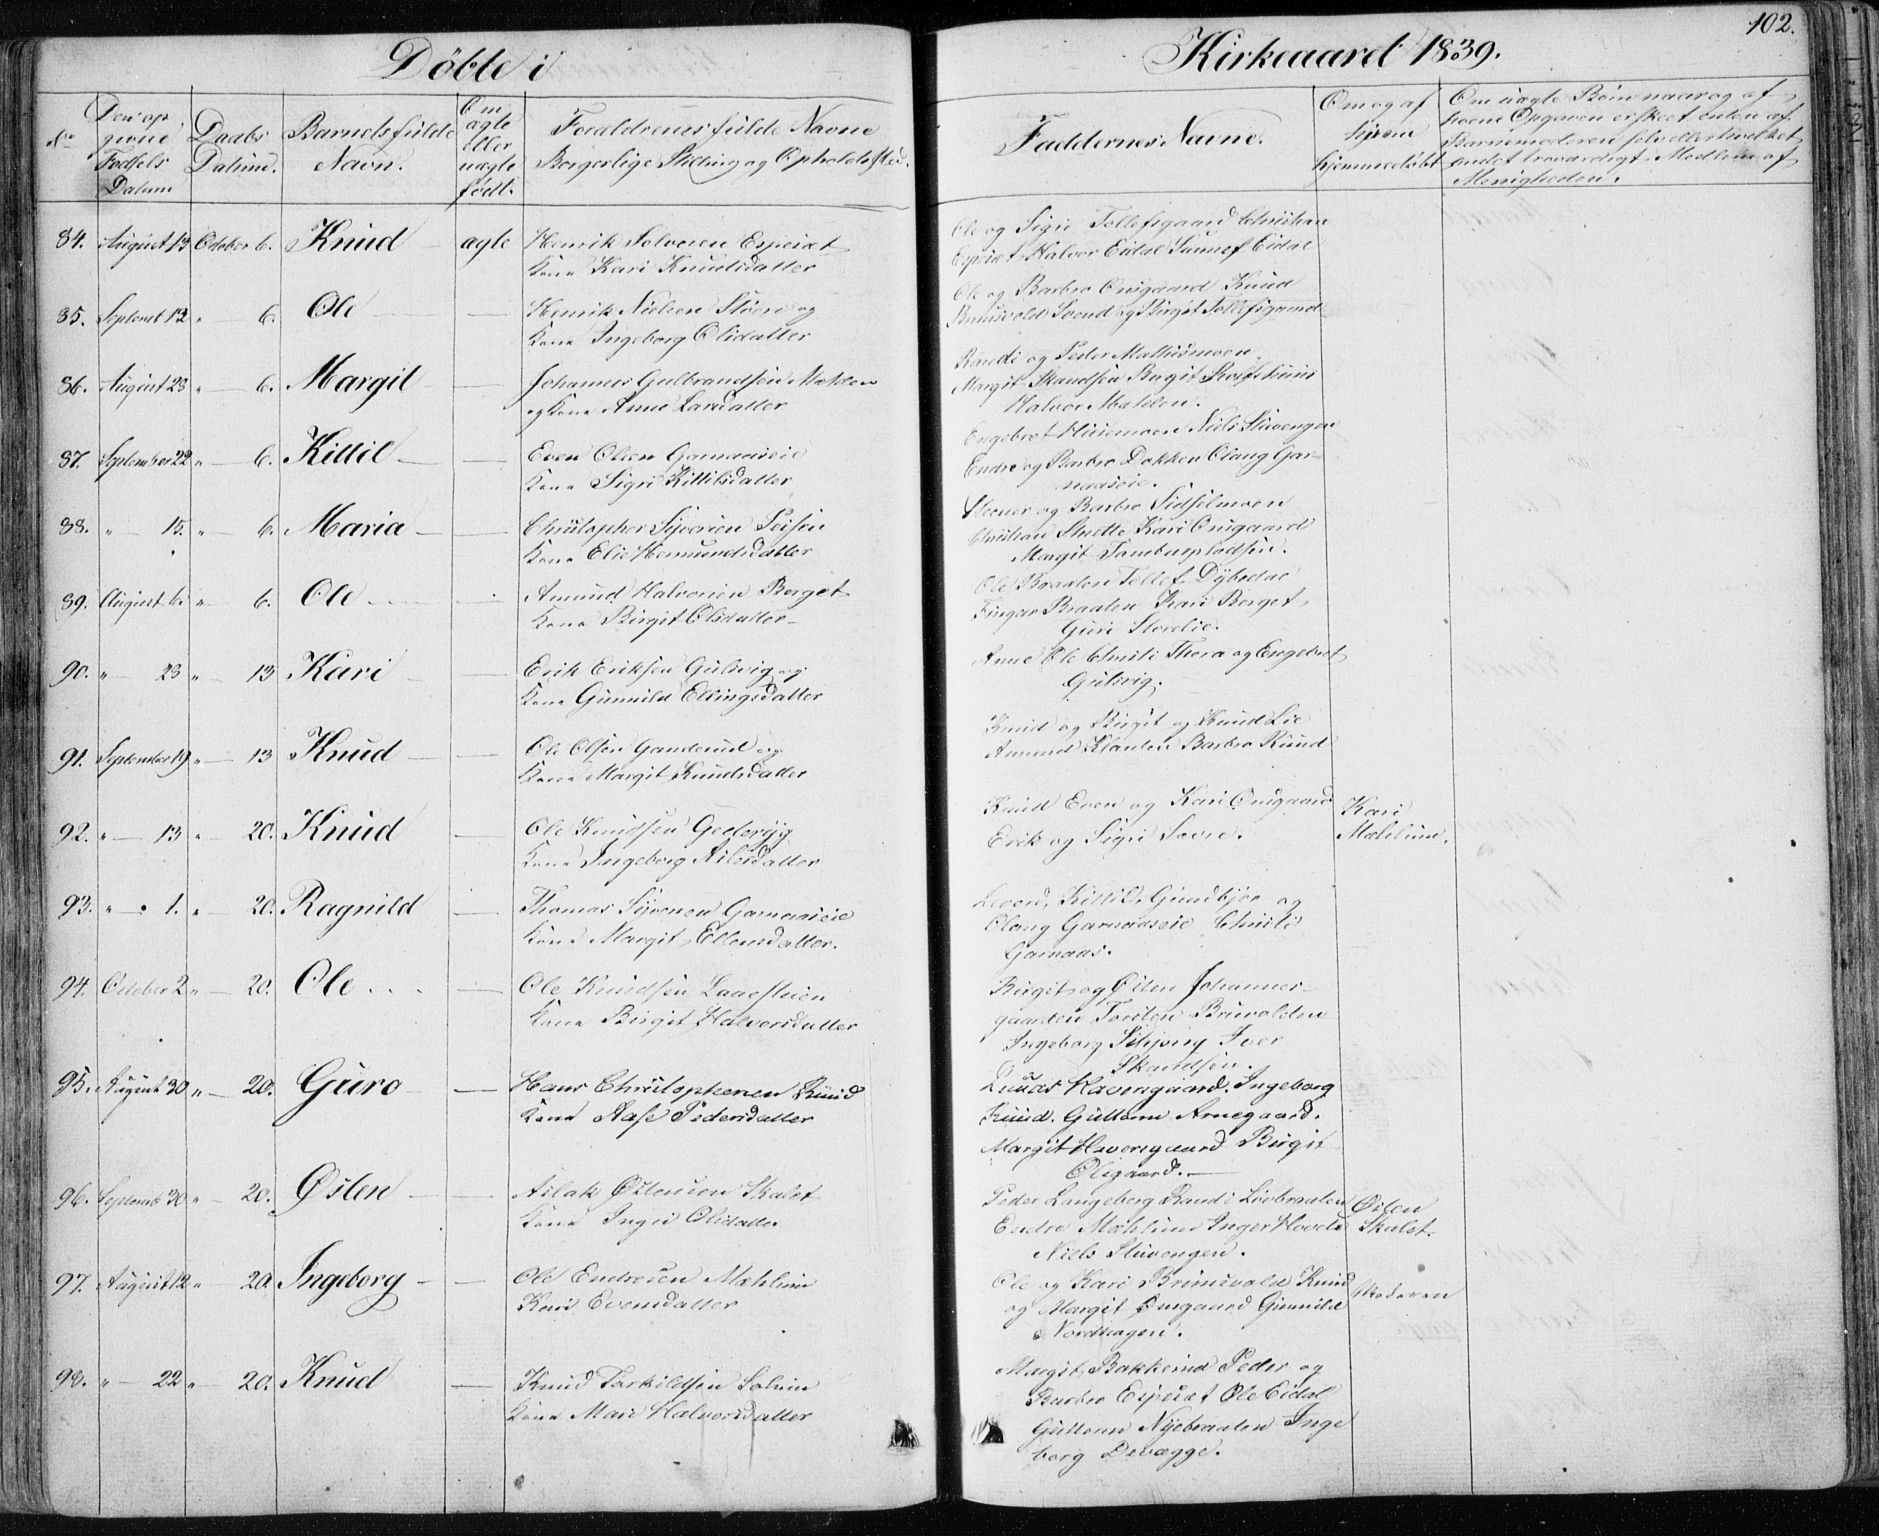 Döbte i
Kirkeaaret 1839.
102.
No
Den op
givne
Fødsels
Datum
Daabs
Datum.
Barnets fulde
Navn.
Om
ægte
eller
uægte
født.
Forældrenes fulde Navne
Borgerlige Stilling og Opholdssted.
Faddernes Navne.
Om og af
hvem
hjemmedøbt
Om uægte Børn naar og af
hvem Opgaven er skeet enten af
Barnemoderen selv eller hvilket
andet troværdigt Medlem af
Menigheden.
84. August 13 October 6. Knud ægte Henrik Solvesen Esperæt
Kone Kari Knudsdatter
Ole og Sigri Tollefsgaard Christian
Esperæt Halvor Eidal Sunnef Eidal
85. Septembr 12 " 6. Ole Henrik Nielsen Støen og
Kone Ingeborg Olsdatter
Ole og Barbro Onsgaard Knud
Brunsvold Svend og Birgit Tollefsgaard
86. August 23 " 6. Margit Johannes Gulbrandsen Mælden
og Kone Anne Larsdatter
Randi og Peder Mathismoen
Margit Skandsen Birgit
Halvor Mælden.
87. September 22 " 6. Kittil Even Olsen Garnaaseie
Kone Sigri Kittilsdatter
Engebret Husemoen Niels Stuvengen
Endre og Barbro Dokken Olaug Gar-
naaseie.
88. " 15. " 6. Maria Christopher Syversen Seisen
Kone Elie Hermundsdatter
Steener og Barbro Sidselmoen
Christian Sinette Kari Onsgaard
Margit Tamburpladsen.
89. August 6. " 6. Ole Amund Halvorsen Berget
Kone Birgit Olsdatter
Ole Braaten Tollef Dybedal
Fingar Braaten Kari Berget
Guri Storelie.
90. " 23 " 13 Kari Erik Eriksen Gulsvig og
Kone Gunnild Ellingsdatter
Anne Ole Christi Thora og Engebret
Gulsvig.
91. September 19 " 13 Knud Ole Olsen Ganderud og
Kone Margit Knudsdatter
Knud og Birgit og Knud Lie
Amund Klanten Barbro Ruud
92. " 13 " 20. Knud Ole Knudsen Gederyg
Kone Ingeborg Asledatter
Knud Even og Kari Onsgaard
Erik og Sigri Sævre.
Kari
Mæhlum.
93. " 1. " 20. Ragnild Thomas Syversen Garnaaseie
Kone Margit Ellensdatter.
Levord, Kittil, Gundbjør og
Olaug Garnaaseie Christi
Garnaas.
94. October 2 " 20. Ole Ole Knudsen Laaesteien
Kone Birgit Halvorsdatter
Birgit og Østen Johannes-
gaarden Torsten Brinvolden
Ingeborg Iver
Skandsen.
95. August 30 " 20. Guro Hans Christophersen Ruud
Kone Aase Pedersdatter
Truuls Haversgaard. Ingeborg
Ruud. Guttorm Arnegaard.
Margit Haversgaard Birgit
Olsgaard.
96. Septemb 30 " 20. Østen Aslak Østensen Skalet
Kone Ingri Olsdatter
Peder Langeberg Randi Liobraaten
Endre Mæhlum Inger Hovde
Niels Stuvengen.
Østen
Skalet.
97. August 12 " 20. Ingeborg Ole Endresen Mæhlum
Kari Evensdatter
Ole og Kari Brunsvold Knud
og Margit Onsgaard Gunnild
Nordhagen.
Moderen
98. " 22 " 20. Knud Knud Torkildsen Solum
Kone Mari Halvorsdatter
Margit Bakkerud Peder og
Barbro Esperæt Ole Eidal
Guttorm Nyebraaten Inge
borg Devægge.